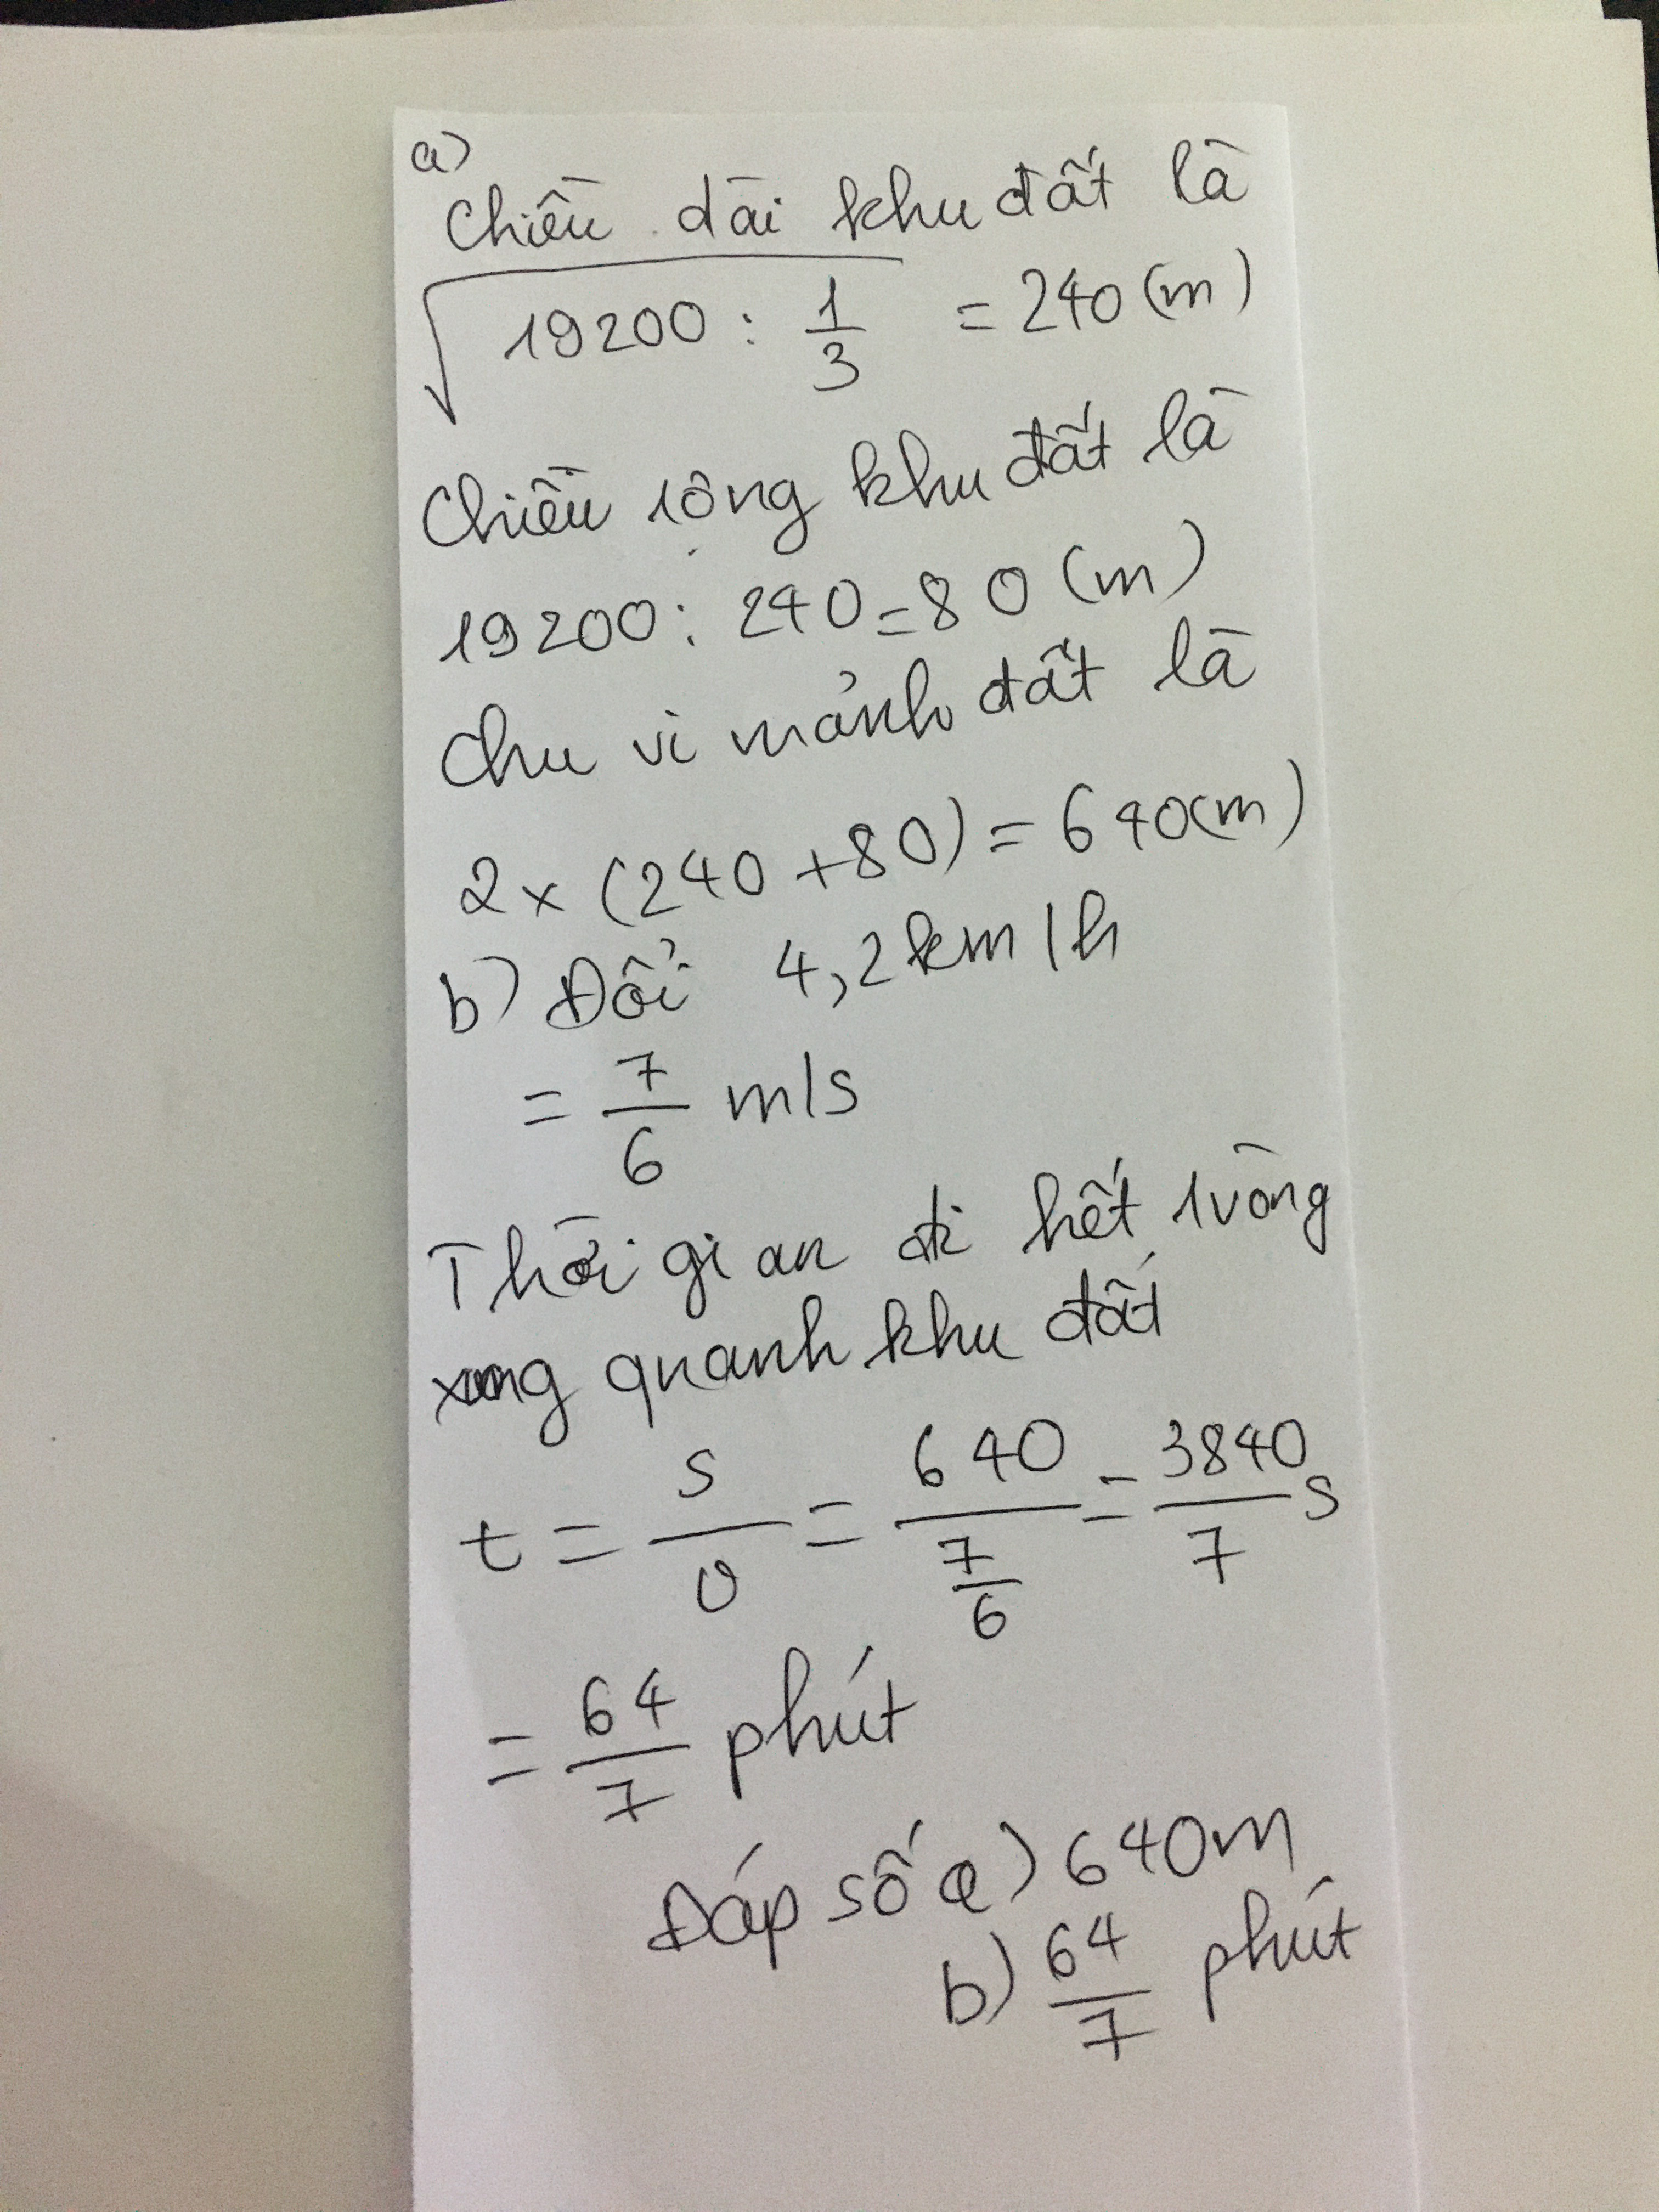 a)
Chiều dài khu đất là
√(19200 : 1/3) = 240 (m)
Chiều rộng khu đất là
19200 : 240 = 80 (m)
Chu vi mảnh đất là
2 x (240 + 80) = 640 (m)
b) Đổi 4,2 km/h
= 7/6 m/s
Thời gian đi hết 1 vòng
xung quanh khu đất
t = s/v = 640/(7/6) = 3840/7 s
= 64/7 phút
Đáp số a) 640m
b) 64/7 phút